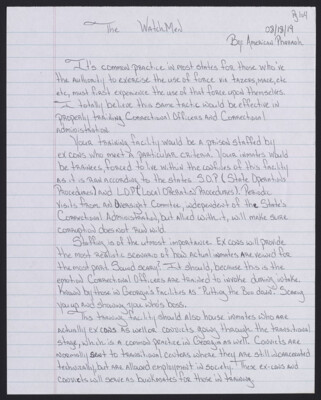 The WatchMen
03/13/19
By, American Pharaoh
It's common practice in most states for those who've
the authority to exercise the use of force vis tazers, mace, etc
etc, must first experience the use of that force upon themselves.
I totally believe this same tactic would be effective in
properly training Correctional Officers and Correctional
administration.
Your training facility would be a prison staffed by
ex cons who meet a particular criteria. Your inmates would
be trainees, forced to live within the confines of this facility
as it is ran according to the states S.O.P (State Operations
Procedures) and L.O.P (Local Operations Procedures). Periodic
visits from an Oversight Committee, independent of the State's
Correctional Administrated, but allied with it, will make sure
corruption does not run wild.
Staffing is of the utmost importance. Ex cons will provide
the most realistic scenarios of how actual inmates are reared for
the most part. Sound scary? It should, because this is the
emotion Correctional Officers are trained to invoke during intake.
Known by those in Georgia's facilities as "Putting the Bus down". Scaring
you up and showing you who's boss.
This training facility should also house inmates who are
actually ex cons as well as convicts going through the transitional
stage, which is a common practice in Georgia as well. Convicts are
normally sent to transitional centers where they are still incarcerated
technically, but are allowed employment in society. These ex cons and
convicts will serve as bunkmates for those in training.